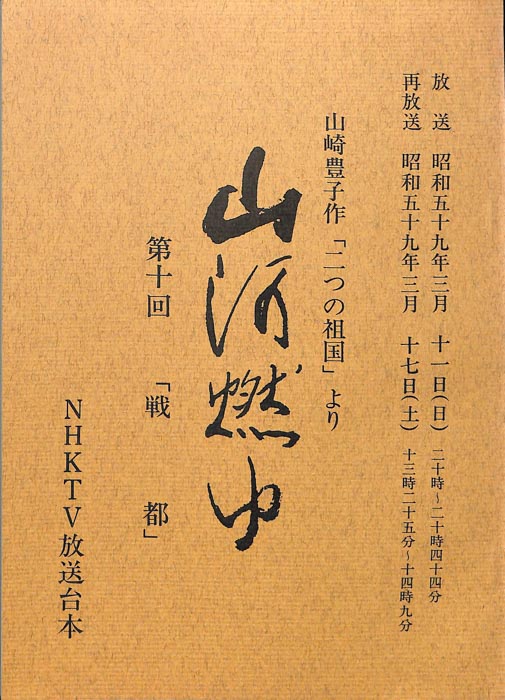 放　送　昭和五十九年三月　十一日(日)　二十時～二十時四十四分
再放送　昭和五十九年三月　十七日(土)　十三時二十五分～十四時九分
山崎豊子作「二つの祖国」より
山河燃ゆ
第十回　「戦　都」
NHKTV放送台本